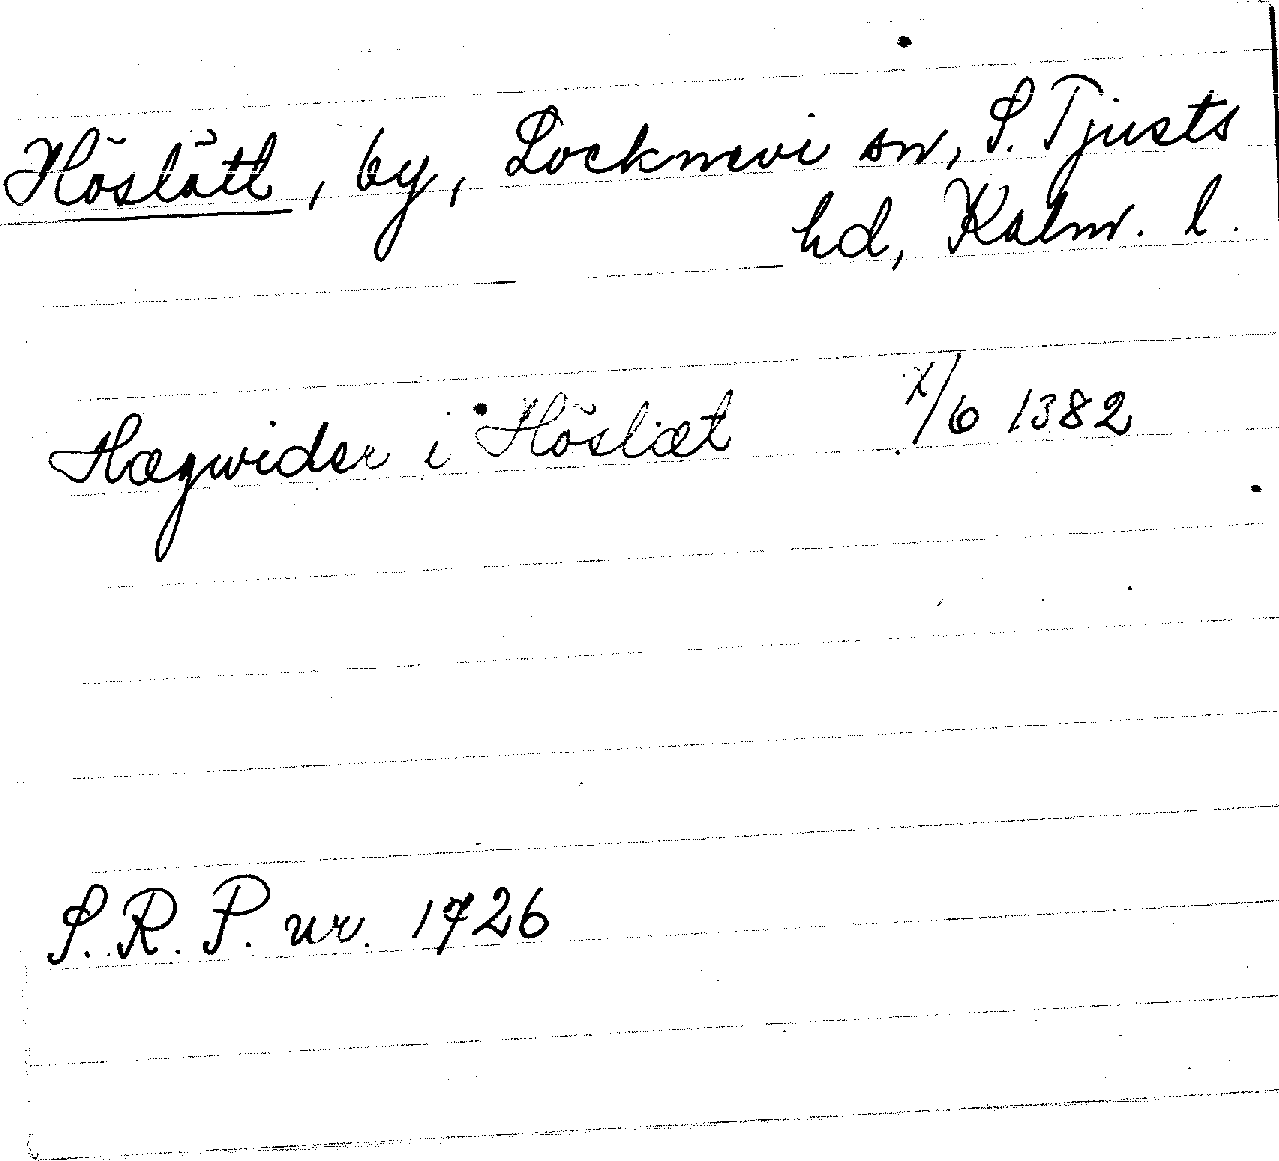 Höslätt, by, Locknevi sn, S. Tjusts
hd, Kalm. l.
Hægwider i Höslæt X/6 1382
S. R. P. nr. 1726